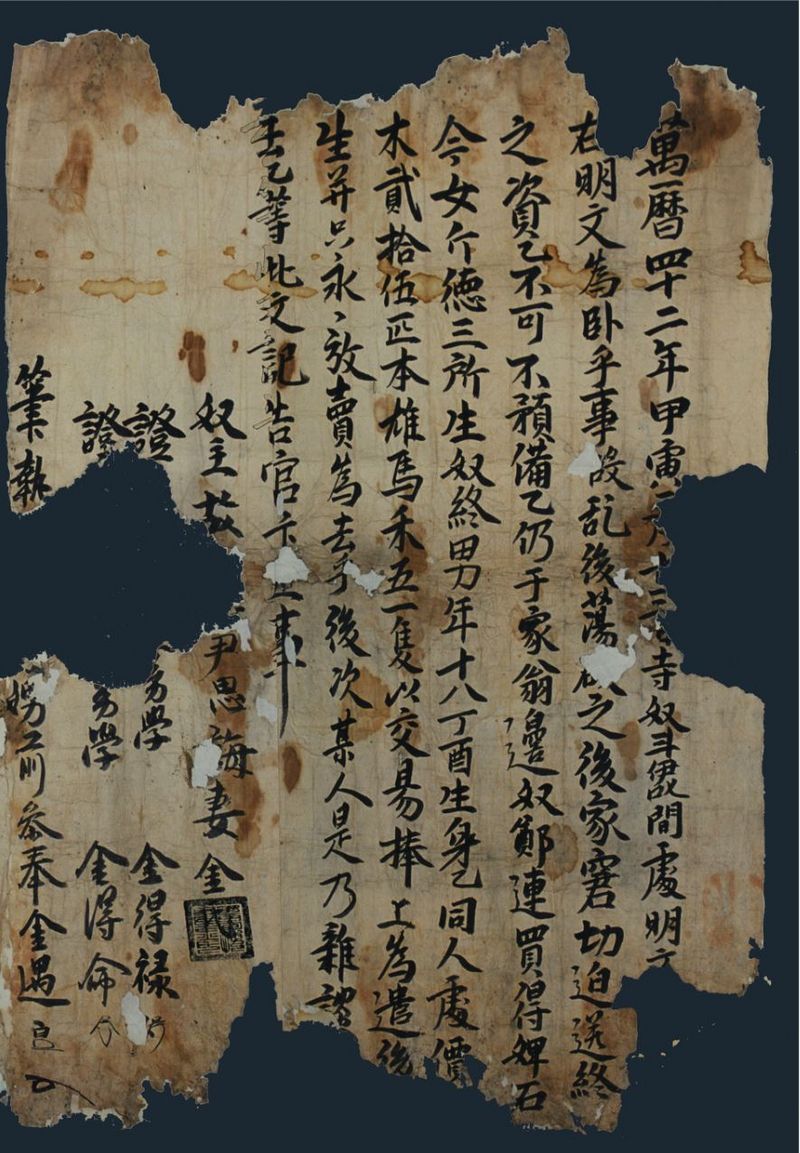 萬曆四十二年甲寅月十三寺奴斗間處明
右明文爲臥乎事段乱後蕩之後家窘切迫送終
之資乙不可不預備乙仍于家翁邊奴鄭連買得婢石
今女介德三所生奴終男年十八丁酉生身乙同人處價
木貳拾伍疋本雄馬禾五一隻以交易捧上爲遣後
生幷只永〻放賣爲去乎後次某人是乃雜談
去乙等此文記告官卞正事
奴主故尹思誨妻金
證 學 金得祿
證 學 金得命
筆執 甥前參奉金遇